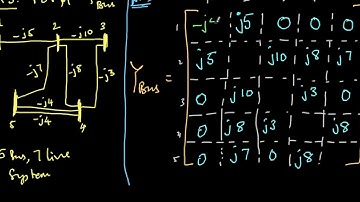 Y Bus
-j5 2 -j10 3
-j7 -j8 -j3
-j4
-j4
5 4
5 Bus, 7 line
System
Y Bus =
1 j5 0 0 0
2 j5 j10 j8 j7
3 0 j10 j3 0
4 0 j8 j3 j8
5 0 j7 0 j8